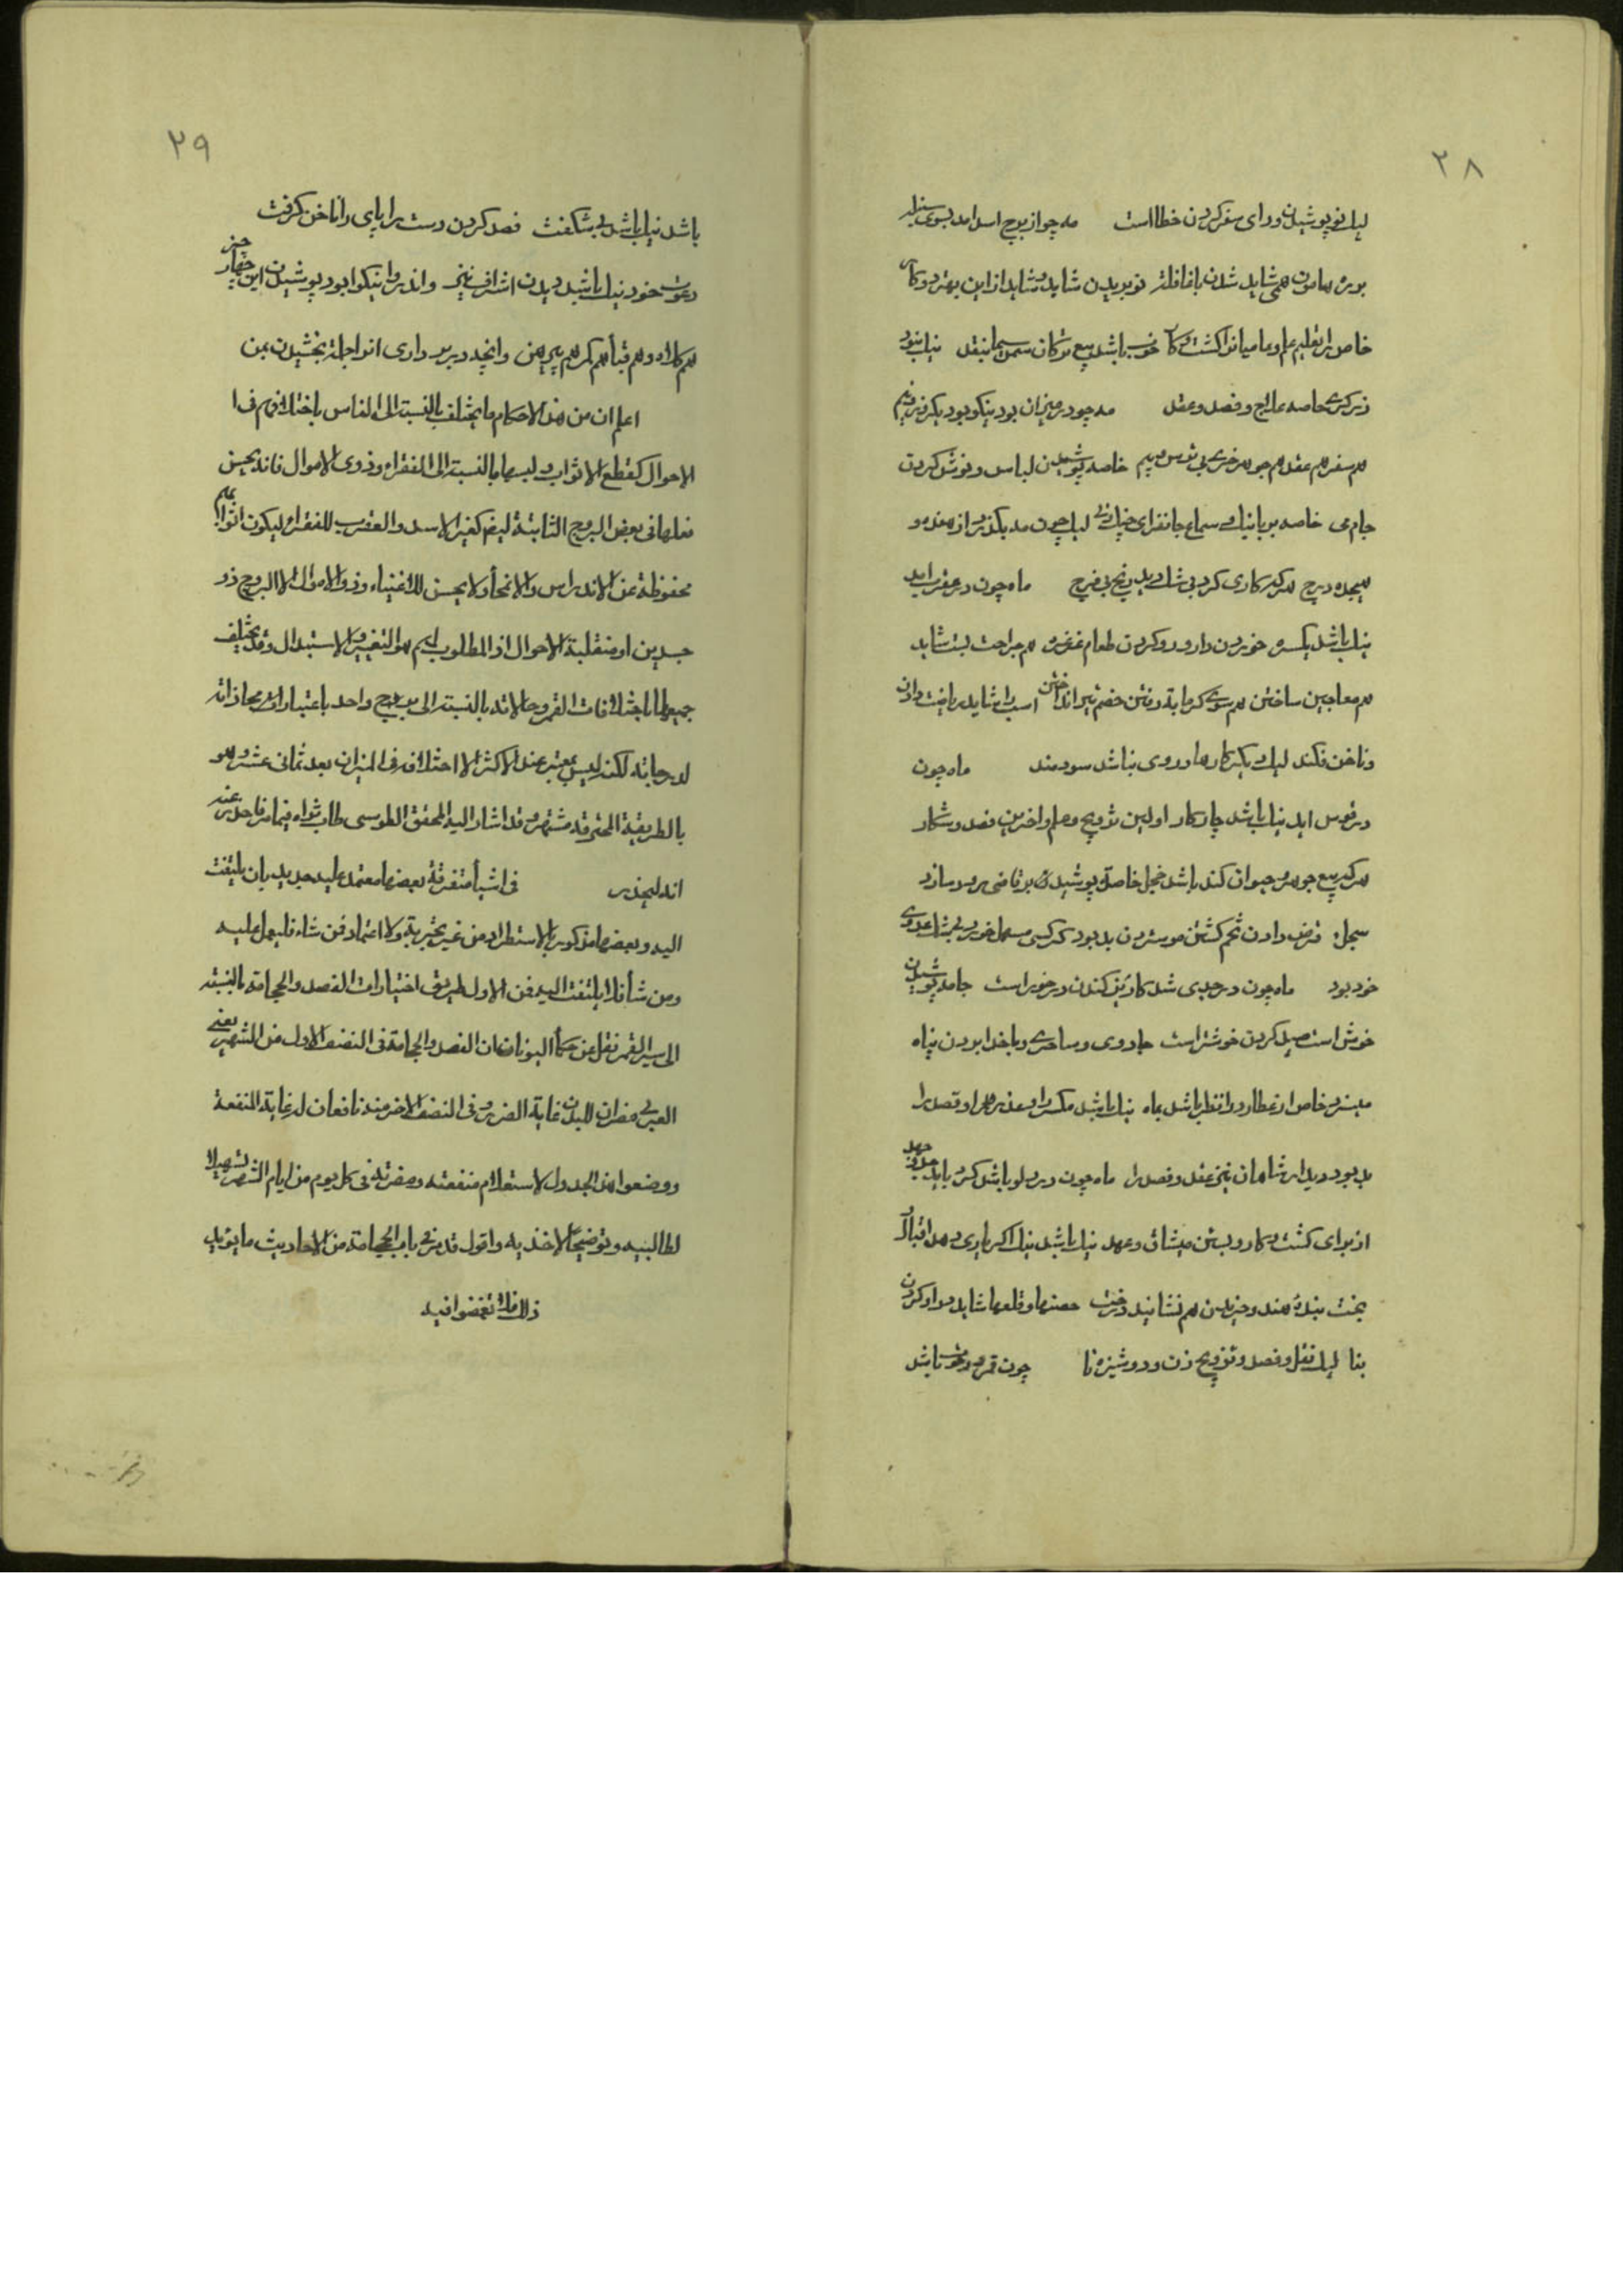 ۲۸
لیک نو پوشیدن و رای سفر کردن خطا است مه چو از برج اسد امد بسوی سنبله
بره هامون همی شاید شدن با قافله نو بریدن شاید و شاید از این بهتر دو کار
خاص مر تعلیم علم و عامیانرا کشت و کار خوب باشد بیع ترکان سمن سیما بنقل نیک نبود
زیرکی خاصه علاج و فصد و عقد مه چو در میزان بود نیکو بود یکر
هم سفر هم عقد هم جوهر خری بی ترس و بیم خاصه پوشیدن لباس و نوش کردن
جام می خاصه بر یا نیک و سماع جانفزای چنک و نی لیک چون مه بکذرد از
هیجده درج هر که کاری کرد بی شک دید رنج بی فرج ماه چون در عقرب امد
نیک باشد یکسره خوردن دارو و کردن طعام غرغره هم جراحت بست شاید
هم معاجین ساختن هم سوی کرمابه رفتن خصم تیر انداختن اسب را شاید ریاضت دادن
و ناخن فکند لیک دیکر کارها در وی نباشد سودمند ماه چون
در قوس اید نیک باشد چار کار اولین تزویج و علم و اخرین فصد و شکار
هر که بیع جوهر و حیوان کند باشد خجل خاصه پوشیدن بر قاضی برو سازد
سجل قرض دادن تخم کشتن مو ستردن بد بود کر کسی مسهل خورد بیشک عدوی
خود بود ماه چون در جدی شد کاریز کندن در خور است جامه پوشیدن
خوش است صید کردن خوشتر است جادوی و ساحری و با خدا بردن پناه
میسزد خاص ار عطارد را نظر باشد بماه نیک باشد مکر را و عذر را و قصد را
بد بود دیدار شاهان نیز عقد و فصد را ماه چون در دلو باشد کرد باید جهد و جد
از برای کشت و کار و بستن میثاق و عهد نیک باشد نیک اکر یاری دهد اقبال
بخت بندهٔ هند و خریدن هم نشانید درخت حصنها و قلعها شاید مداد کردن
بنا لیک نقل و فصد و تزویج زن و دوشیزه نا چون قمر در حوت باشد
۲۹
باشد نیک باشد بی شکفت فصد کردن دست را پای را ناخن کرفت
دعوت خود نیک باشد دیدن اشراف نیز و اندر او نیکو بود پوشیدن این چهار چیز
هم کلاه و هم قبا هم کمر هم پیرهن و انچه در بر داری انرا جمله بخشیدن بمن
اعلم ان من هذه الاحکام ما یختلف بالنسبة الی الناس باختلافهم فی
الاحوال کقطع الاثواب و لبسها بالنسبة الی الفقراء و ذوی الاموال فانه یحسن
فعلها فی بعض البروج الثابتة لهم کغیر الاسد و العقرب للفقراء لیکون اثوابهم
محفوظة عن الاندراس و الانمحاء و لا یحسن للاغنیاء و ذو الاموال الا البروج ذو
جسدین او منقلبة الاحوال اذ المطلوب لهم هو التغییر و الاستبدال و قد یختلف
جمیعها باختلافات القمر و حالاته بالنسبة الی برج واحد باعتبارات محاذاته
لدرجاته لکنه لیس بمعتبر عند الاکثر الا اختلافه فی المیزان بعد ثمانی عشر و هو
بالطریقة المحترقه مشتهر و قد اشار الیه المحقق الطوسی طاب ثراه فیما مر فاحذر عنه
انه لیحذر فی اشیاء متفرقة بعضها معتمد علیه جدید بان یلتفت
الیه و بعضها مذکور بالاستطراد من غیر تجربة و لا اعتماد فمن شاء فلیعمل علیه
و من شاء فلا یلتفت الیه فمن الاول طریق اختیارات الفصد و الحجامة بالنسبة
الی سیر القمر نقل عن حکماء الیونان ان الفصد و الحجامة فی النصف الاول من الشهر یعنی
العربی مضران للبدن غایة الضرر و فی النصف الاخر منه نافعان له غایة المنفعة
و وضعوا هذا الجدول لاستعلام منفعته و مضرته فی کل یوم من ایام الشهر تسهیلا
لطالبیه و توضیحا لاخذیه و اقول قد مر فی باب الحجامة من الاحادیث ما یؤید
ذلک فلا تغمضوا فیه